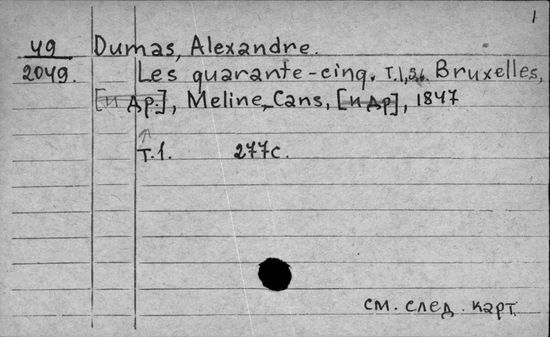 1
49 Dumas, Alexandre.
2049. Les quarante-cinq. T.1,3,6. Bruxelles,
[и др.], Meline, Cans, [и др], 1847
т.1. 277с.
см. след. карт.